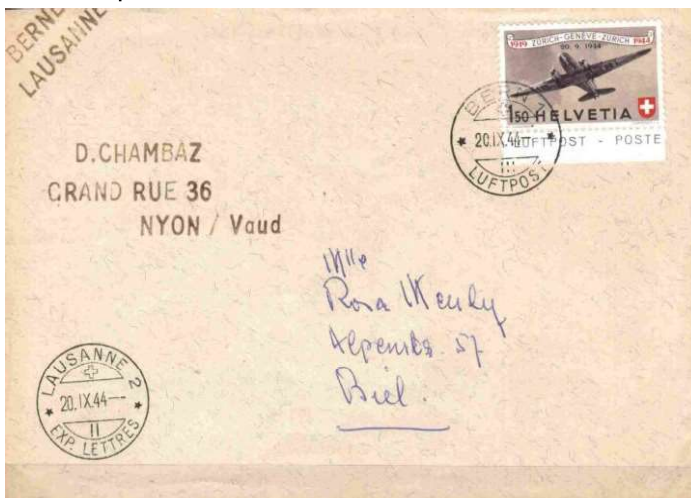 BERNE
LAUSANNE
1919 ZÜRICH-GENÈVE-ZÜRICH 1944
20. 9. 1944
1.50 HELVETIA
LUFTPOST - POSTE
BERN 1
20.IX.44
III
LUFTPOST
D.CHAMBAZ
GRAND RUE 36
NYON / Vaud
Mlle
Rosa
57
Biel.
LAUSANNE 2
20.IX.44
II
EXP. LETTRES